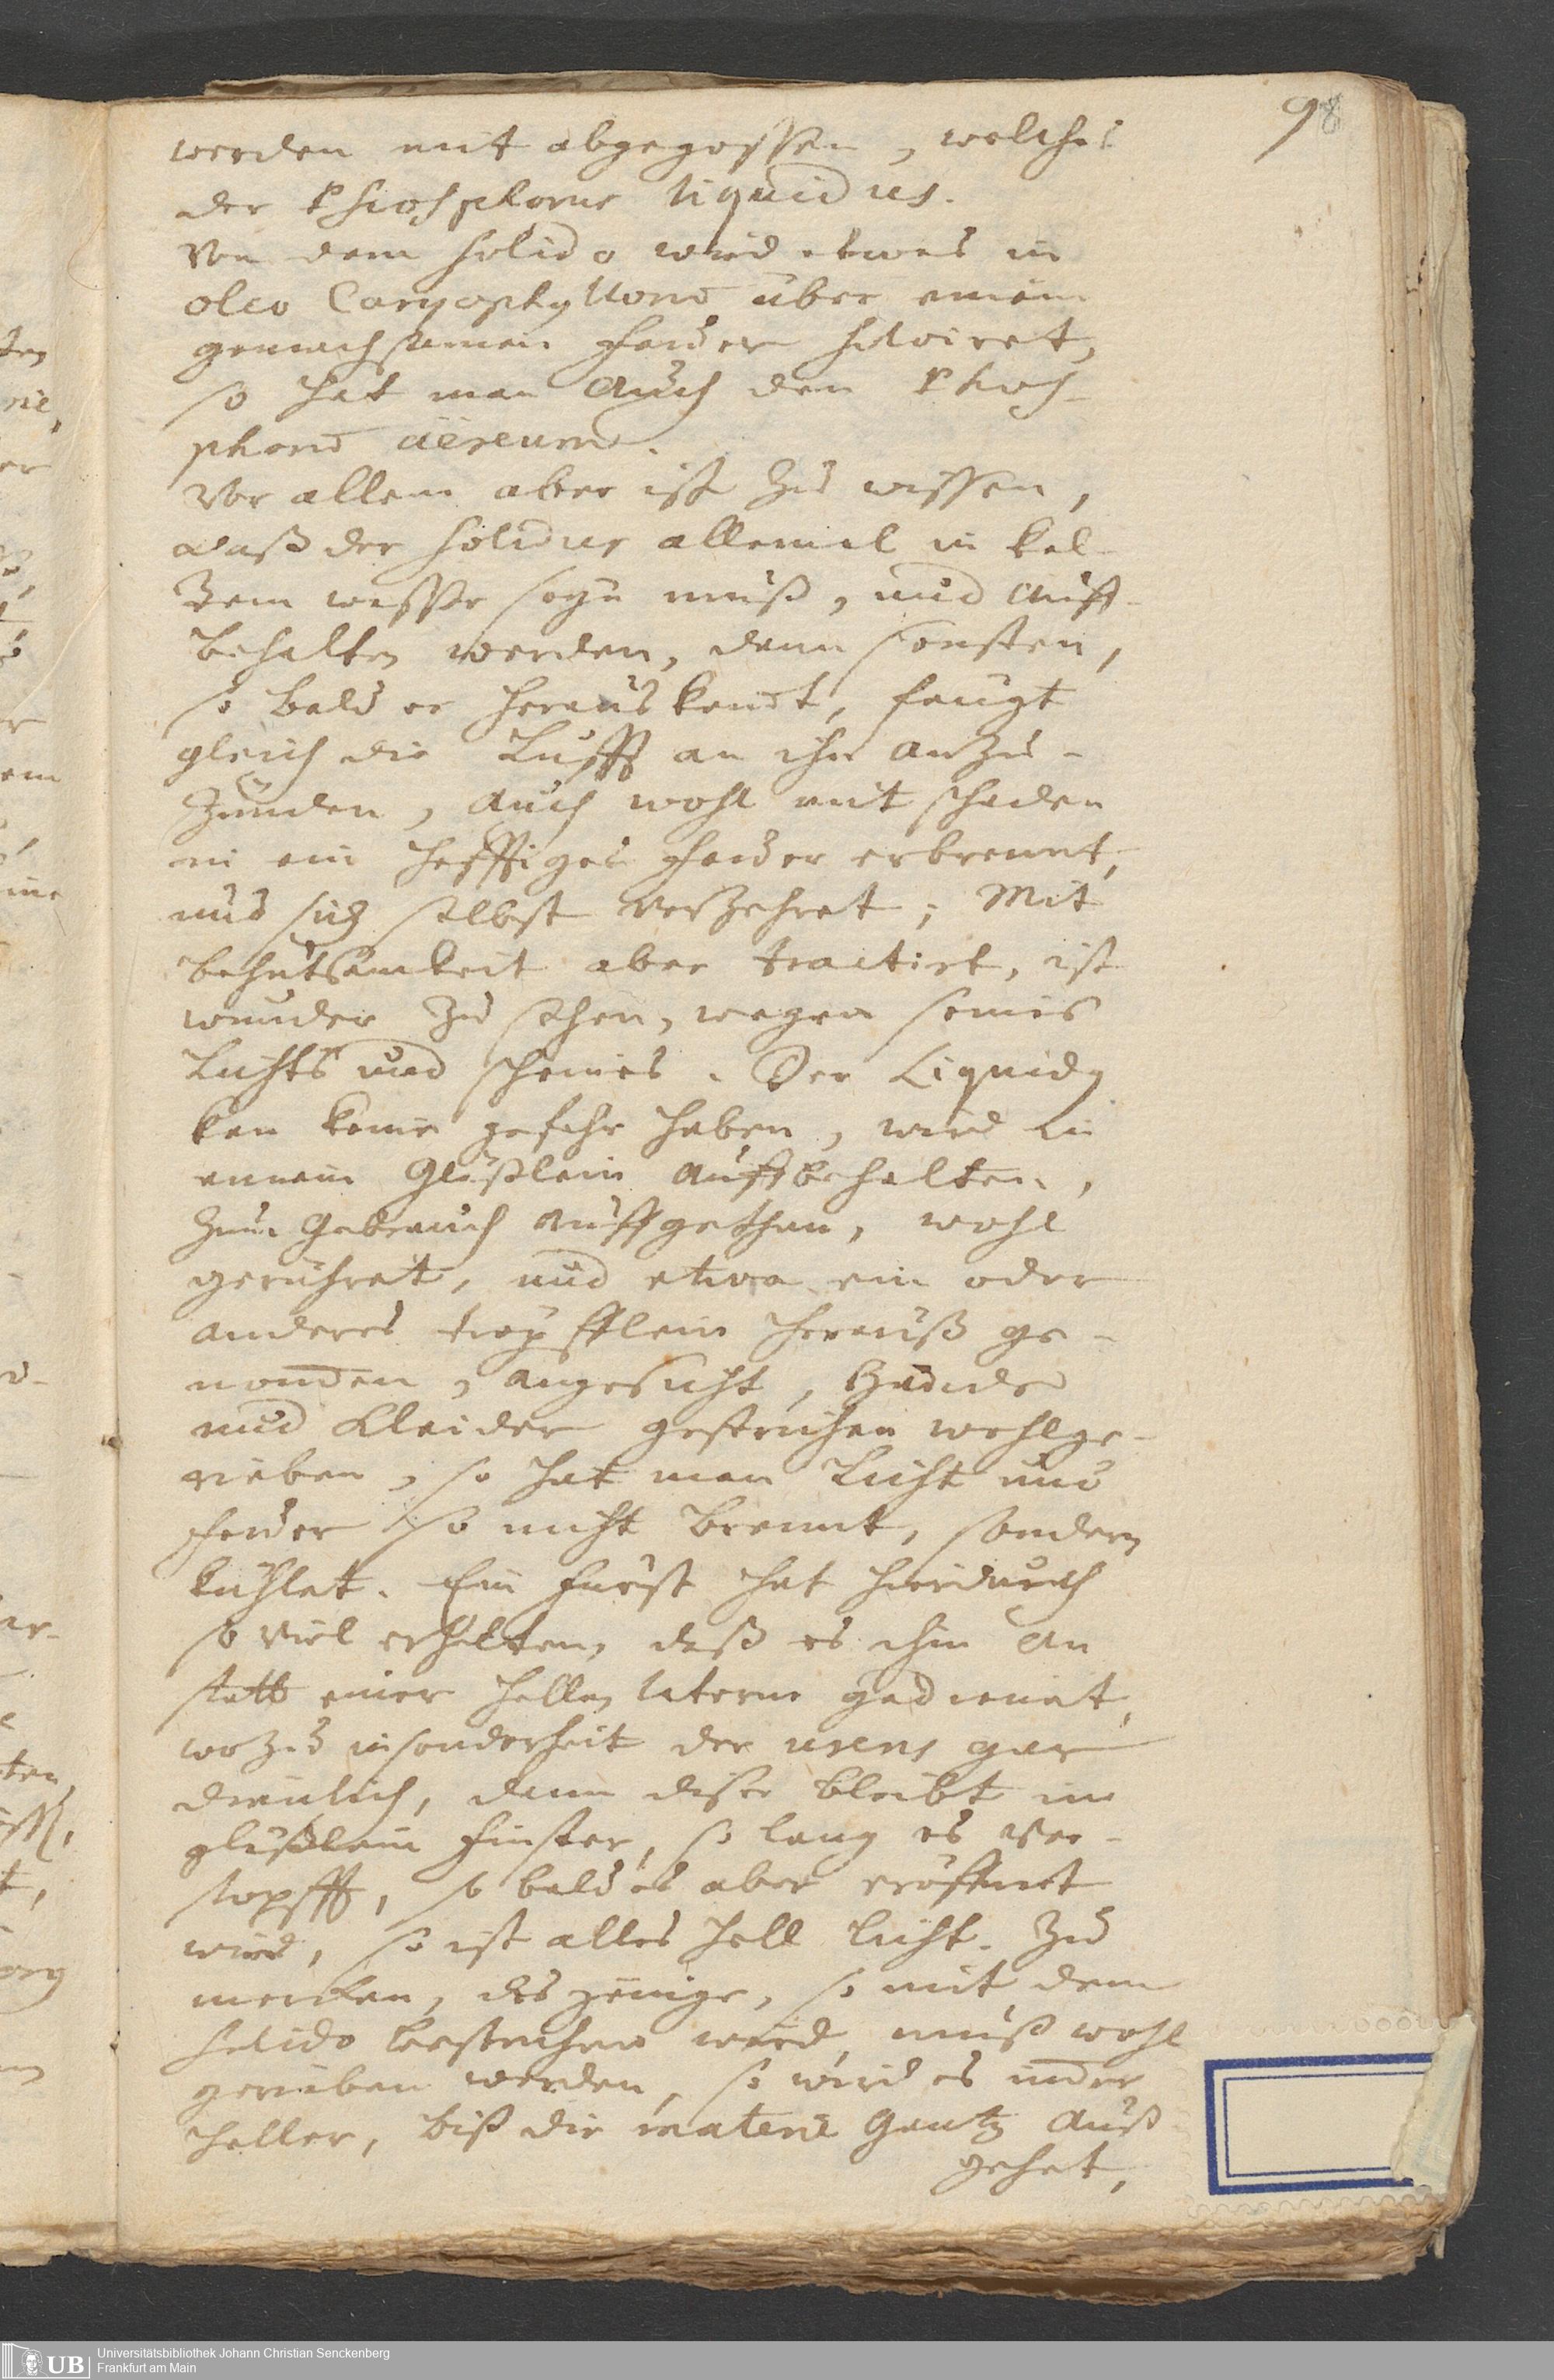 98
werden mit abgegossen, welches
der Phosphorus liquidus.
Von dem solido wird etwas in
oleo Caryophyllorum über einem
gemachsamen Feuer solviret,
so hat man Auch den Phos-
phorum aëreum.
Vor allem aber ist zu wissen,
daß der solidus allemal in kal-
tem wasser seyn muß, und Auff-
behalten werden, dann sonsten,
so bald er heraus komt, fangt
gleich die Lufft an ihn anzu-
zünden, Auch wohl mit schaden
in ein hefftiges Feuer erbrennt,
und sich selbst verzehret; Mit
behutsamkeit aber tractirt, ist
wunder zu sehen, wegen seines
Lichts und scheines. Der Liquidus
kan keine gefahr haben, wird in
einem Gläßlein Auffbehalten,
zum Gebrauch auffgethan, wohl
gerühret, und etwa ein oder
anderes tröpfflein herauß ge-
nommen, angesicht, Hände
und Kleider gestrichen wohlge-
rieben, so hat man Licht und
Feuer so nicht brennt, sondern
kühlet. Ein Fürst hat hierdurch
so viel erhalten, daß es ihm an
statt einer hellen laterne gedienet,
wozu insonderheit der aereus gar
dienlich, dann diser bleibt im
gläßlein finster, so lang es ver-
stopfft, so bald es aber eröffnet
wird, so ist alles hell licht. Zu
mercken, das jenige, so mit dem
solido bestrichen wird, muß wohl
gerieben werden, so wird es immer
heller, biß die materie Gantz Auß
gehet,
Universitätsbibliothek Johann Christian Senckenberg
Frankfurt am Main
UB